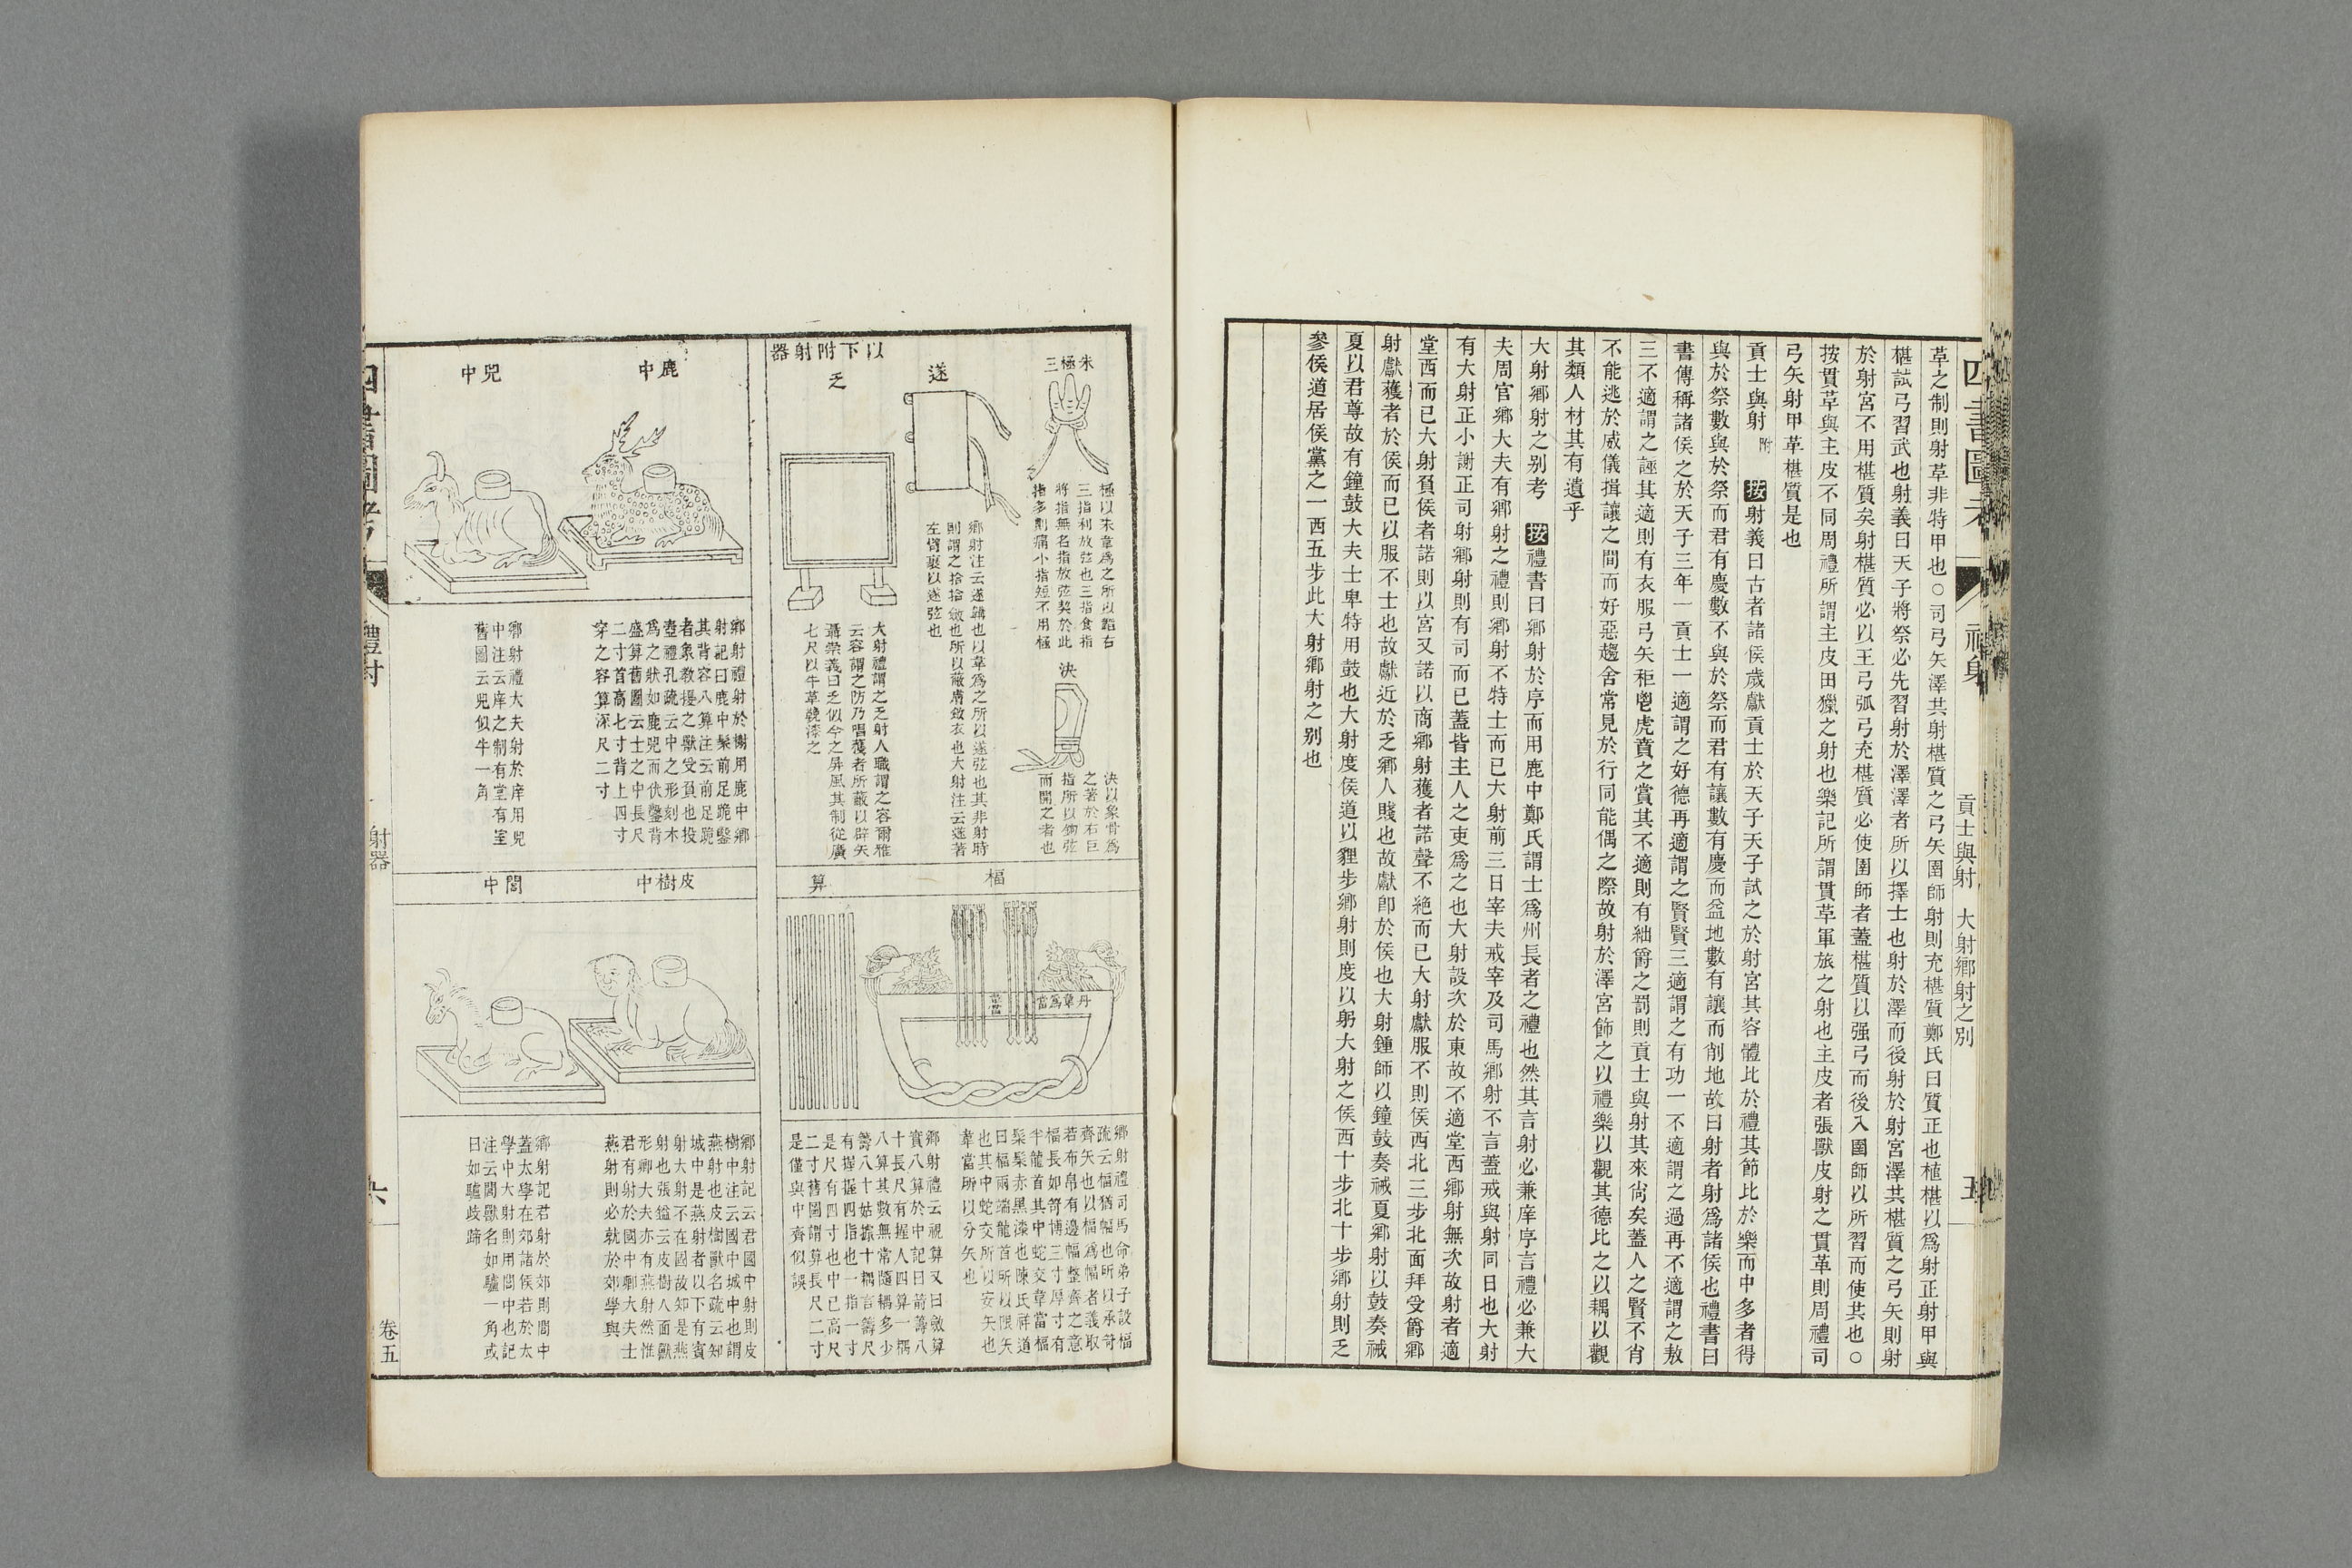 四書圖考
貢士與射　大射鄉射之別
五
革之制則射革非特甲也○司弓矢澤共射椹質之弓矢圉師射則充椹質鄭氏曰質正也植椹以爲射正射甲與
椹試弓習武也射義曰天子將祭必先習射於澤澤者所以擇士也射於澤而後射於射宮澤共椹質之弓矢則射
於射宮不用椹質矣射椹質必以王弓弧弓充椹質必使圉師者蓋椹質以强弓而後入圉師以所習而使共也○
按貫革與主皮不同周禮所謂主皮田獵之射也樂記所謂貫革軍旅之射也主皮者張獸皮射之貫革則周禮司
弓矢射甲革椹質是也
貢士與射 附　按射義曰古者諸侯歲獻貢士於天子天子試之於射宮其容體比於禮其節比於樂而中多者得
與於祭數與於祭而君有慶數不與於祭而君有讓數有慶而益地數有讓而削地故曰射者射爲諸侯也禮書曰
書傳稱諸侯之於天子三年一貢士一適謂之好德再適謂之賢賢三適謂之有功一不適謂之過再不適謂之敖
三不適謂之誣其適則有衣服弓矢秬鬯虎賁之賞其不適則有絀爵之罰則貢士與射其來尙矣蓋人之賢不肖
不能逃於威儀揖讓之間而好惡趨舍常見於行同能偶之際故射於澤宮飾之以禮樂以觀其德比之以耦以觀
其類人材其有遺乎
大射鄉射之别考　按禮書曰鄉射於序而用鹿中鄭氏謂士爲州長者之禮也然其言射必兼庠序言禮必兼大
夫周官鄉大夫有鄉射之禮則鄉射不特士而已大射前三日宰夫戒宰及司馬鄉射不言蓋戒與射同日也大射
有大射正小謝正司射鄉射則有司而已蓋皆主人之吏爲之也大射設次於東故不適堂西鄉射無次故射者適
堂西而已大射負侯者諾則以宮又諾以商鄉射獲者諾聲不絶而已大射獻服不則侯西北三步北面拜受爵鄉
射獻獲者於侯而已以服不士也故獻近於乏鄉人賤也故獻卽於侯也大射鍾師以鐘鼓奏祴夏鄉射以鼓奏祴
夏以君尊故有鐘鼓大夫士卑特用鼓也大射度侯道以貍步鄉射則度以躬大射之侯西十步北十步鄉射則乏
參侯道居侯黨之一西五步此大射鄉射之别也
朱極三
極以朱韋爲之所以韜右
三指利放弦也三指食指
將指無名指放弦契於此
指多則痛小指短不用極
決
決以象骨爲
之著於右巨
指所以鉤弦
而闓之者也
遂
鄉射注云遂韝也以韋爲之所以遂弦也其非射時
則謂之拾拾斂也所以蔽膚斂衣也大射注云遂著
左臂裹以遂弦也
以下附射器
乏
大射禮謂之乏射人職謂之容爾雅
云容謂之防乃唱獲者所蔽以辟矢
聶崇義曰乏似今之屏風其制從廣
七尺以牛革鞔漆之
楅
丹韋爲當
韋當
鄉射禮司馬命弟子設楅
疏云楅猶幅也所以承笴
齊矢也以楅爲幅者義取
若布帛有邊幅整齊之意
楅長如笴博三寸厚寸有
半龍首其中蛇交韋當楅
髹髹赤黑漆也陳氏祥道
曰楅兩端龍首所以限矢
也其中蛇交所以安矢也
韋當所以分矢也
算
鄉射禮云視算又曰斂算
實八算於中記曰箭籌八
十長尺有握人四算一耦
八算其數無常隨耦多少
籌八十姑據十耦言籌尺
有握握四指也一指一寸
是尺有四寸也中已高尺
二寸舊圖謂算長尺二寸
是僅與中齊似誤
鹿中
鄉射禮射於榭用鹿中鄉
射記曰鹿中髹前足跪鑿
其背容八算注云前足跪
者象教擾之獸受負也投
壺禮孔疏云中之形刻木
爲之狀如鹿兕而伏鑿背
盛算舊圖云士之中長尺
二寸首高七寸背上四寸
穿之容算深尺二寸
兕中
鄉射禮大夫射於庠用兕
中注云庠之制有堂有室
舊圖云兕似牛一角
皮樹中
鄉射記云君國中射則皮
樹中注云國中城中也謂
燕射也皮樹獸名疏云知
城中是燕射者以下有賓
射大射不在國故知是燕
射也張鎰云皮樹人面獸
形卿大夫亦有燕射然惟
君有射於國中卿大夫士
燕射則必就於郊學與
閭中
鄉射記君射於郊則閭中
蓋太學在郊諸侯若於太
學中大射則用閭中也記
注云閭獸名如驢一角或
曰如驢歧蹄
四書圖考
禮射
射器
六
卷五